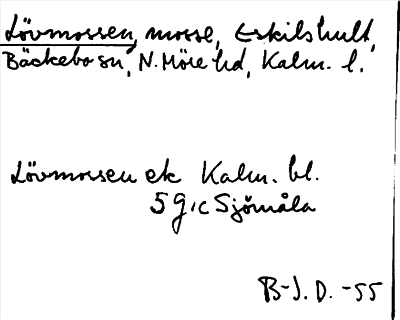 Lövmossen, mosse, Eskilshult,
Bäckebo sn, N. Möre hd, Kalm. l.
Lövmossen ek Kalm. bl.
5 g, c Sjömåla
B-J. D. -55